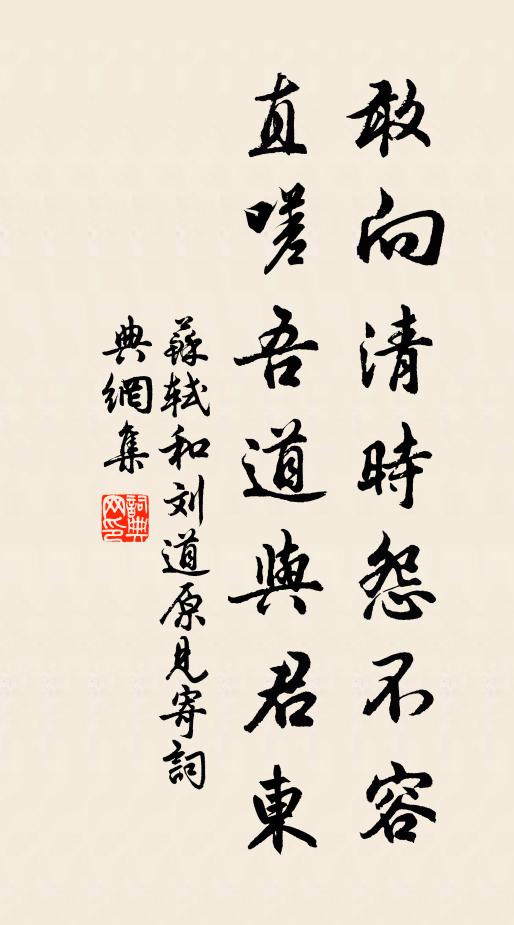 敢向清時怨不容
直嗟吾道與君東
蘇軾和刘道原見寄詞
典網集
詞典
网印